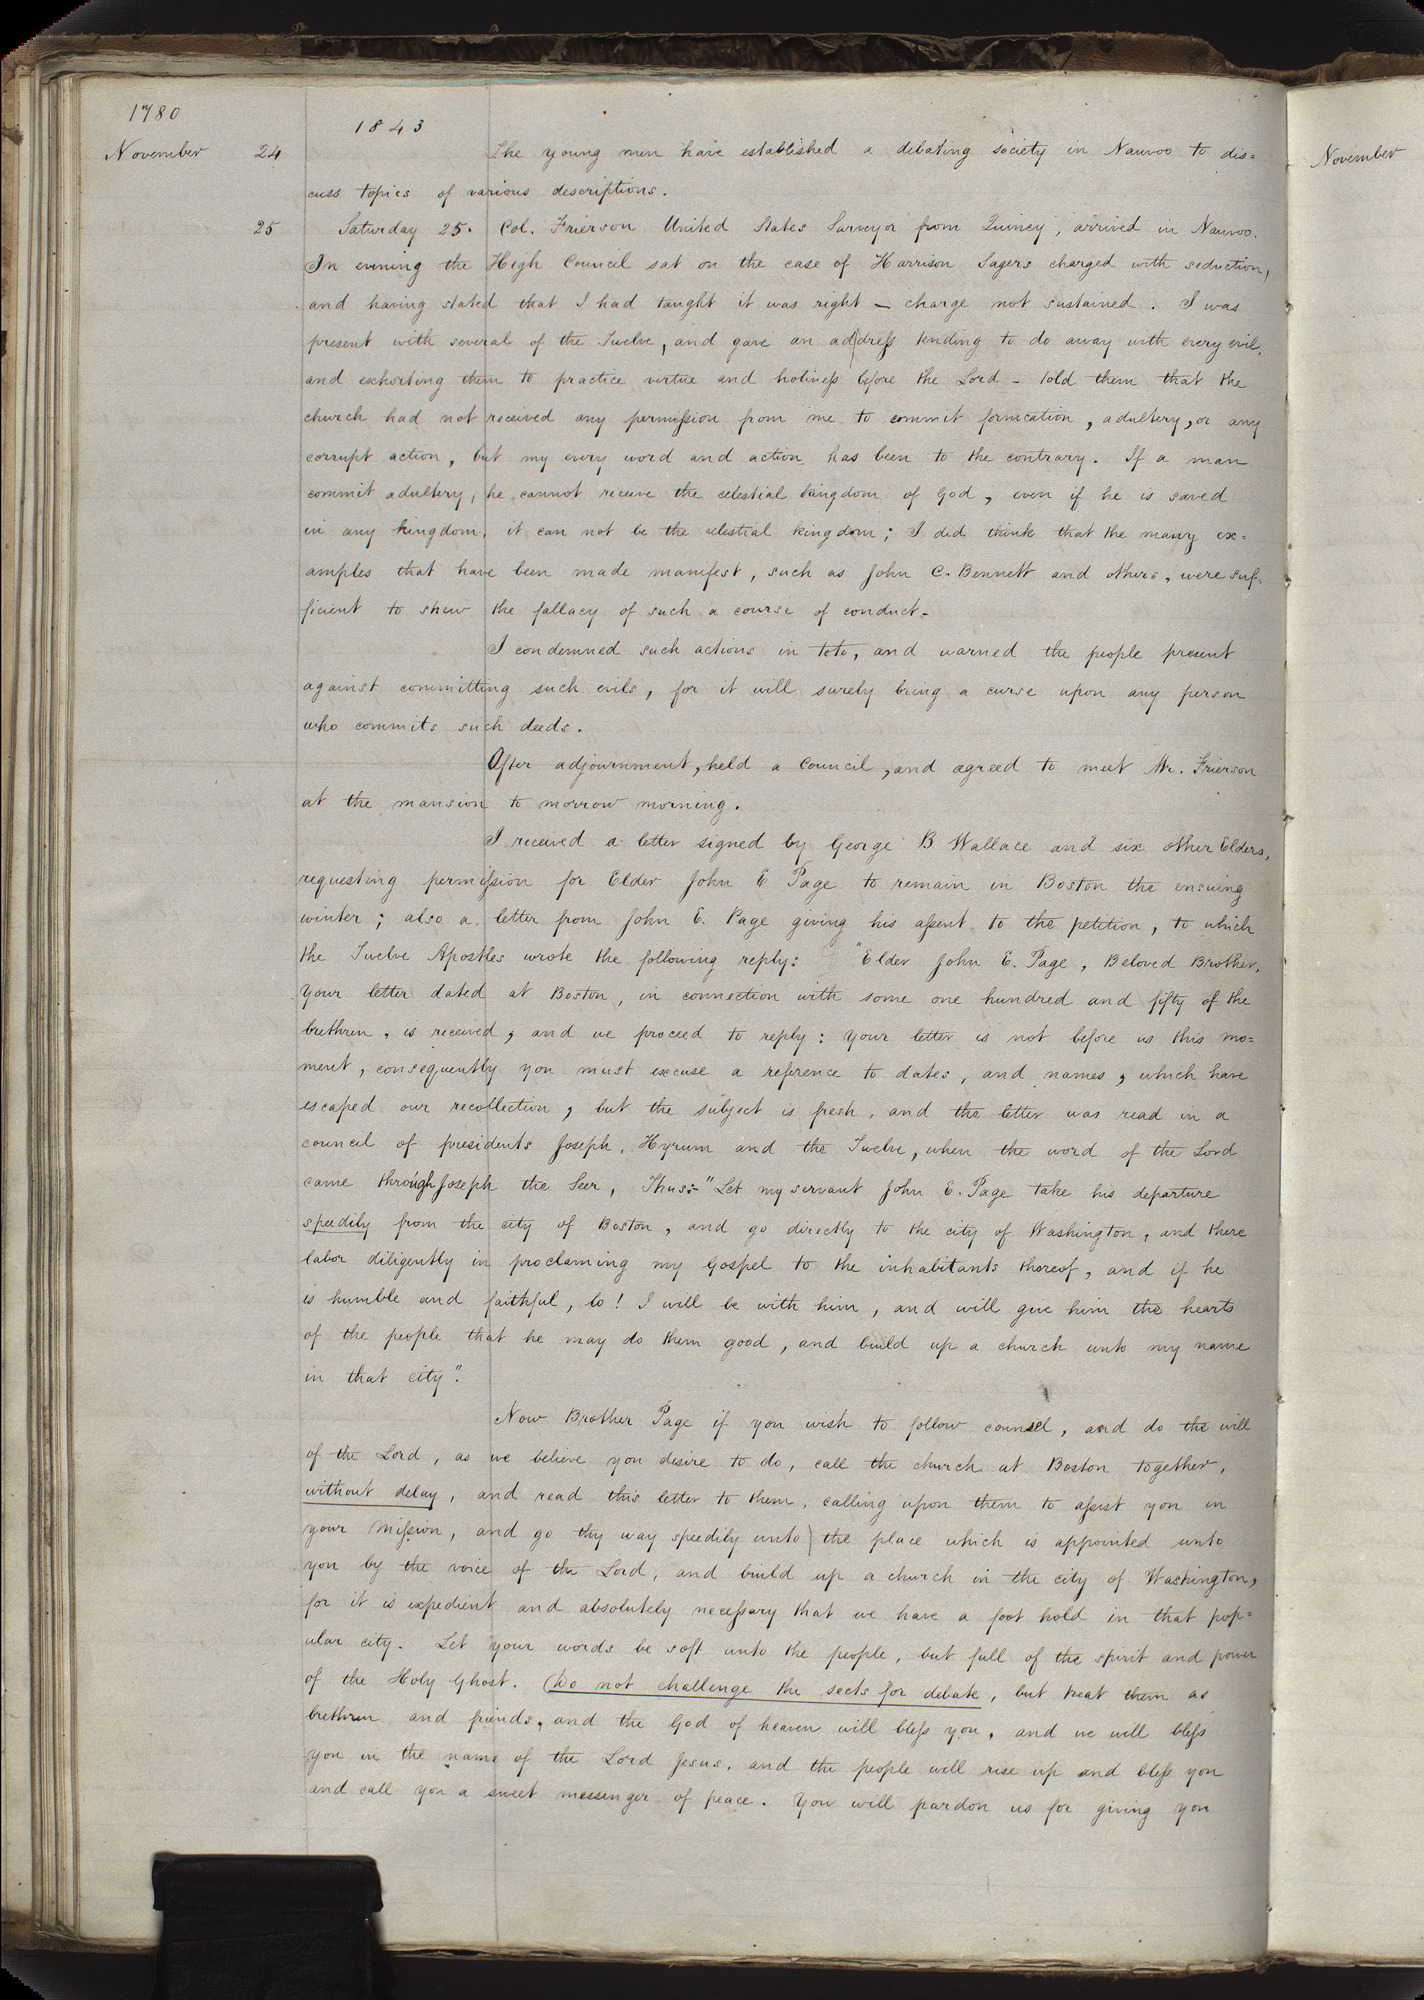 1780
1843
November 24 The young men have established a debating society in Nauvoo to dis=
cuss topics of various descriptions.
25 Saturday 25. Col. Frierson United States Surveyor from Quincy, arrived in Nauvoo.
In evening the High Council sat on the case of Harrison Sagers charged with seduction,
and having stated that I had taught it was right — charge not sustained. I was
present with several of the Twelve, and gave an address tending to do away with every evil,
and exhorting them to practice virtue and holiness before the Lord - told them that the
church had not received any permission from me to commit fornication, adultery, or any
corrupt action, but my every word and action has been to the contrary. If a man
commit adultery, he cannot receive the celestial kingdom of God, even if he is saved
in any kingdom, it can not be the celestial kingdom; I did think that the many ex=
amples that have been made manifest, such as John C. Bennett and others, were suf=
ficient to shew the fallacy of such a course of conduct.
I condemned such actions in toto, and warned the people present
against committing such evils, for it will surely bring a curse upon any person
who commits such deeds.
After adjournment, held a council, and agreed to meet Mr. Frierson
at the mansion to morrow morning.
I received a letter signed by George B Wallace and six other Elders,
requesting permission for Elder John E Page to remain in Boston the ensuing
winter; also a letter from John E. Page giving his assent to the petition, to which
the Twelve Apostles wrote the following reply: "Elder John E. Page, Beloved Brother,
Your letter dated at Boston, in connection with some one hundred and fifty of the
brethren, is received, and we proceed to reply: Your letter is not before us this mo=
ment, consequently you must excuse a reference to dates, and names, which have
escaped our recollection, but the subject is fresh, and the letter was read in a
council of presidents Joseph, Hyrum and the Twelve, when the word of the Lord
came through Joseph the Seer, Thus:- "Let my servant John E. Page take his departure
speedily from the city of Boston, and go directly to the city of Washington, and there
labor diligently in proclaming my Gospel to the inhabitants thereof, and if he
is humble and faithful, lo! I will be with him, and will give him the hearts
of the people that he may do them good, and build up a church unto my name
in that city".
Now Brother Page if you wish to follow counsel, and do the will
of the Lord, as we believe you desire to do, call the church at Boston together,
without delay, and read this letter to them, calling upon them to assist you in
your mission, and go thy way speedily unto the place which is appointed unto
you by the voice of the Lord, and build up a church in the city of Washington,
for it is expedient and absolutely necessary that we have a foot hold in that pop=
ular city. Let your words be soft unto the people, but full of the spirit and power
of the Holy Ghost. (Do not challenge the sects for debate, but treat them as
brethren and friends, and the God of heaven will bless you, and we will bless
you in the name of the Lord Jesus, and the people will rise up and bless you
and call you a sweet messenger of peace. You will pardon us for giving you
November